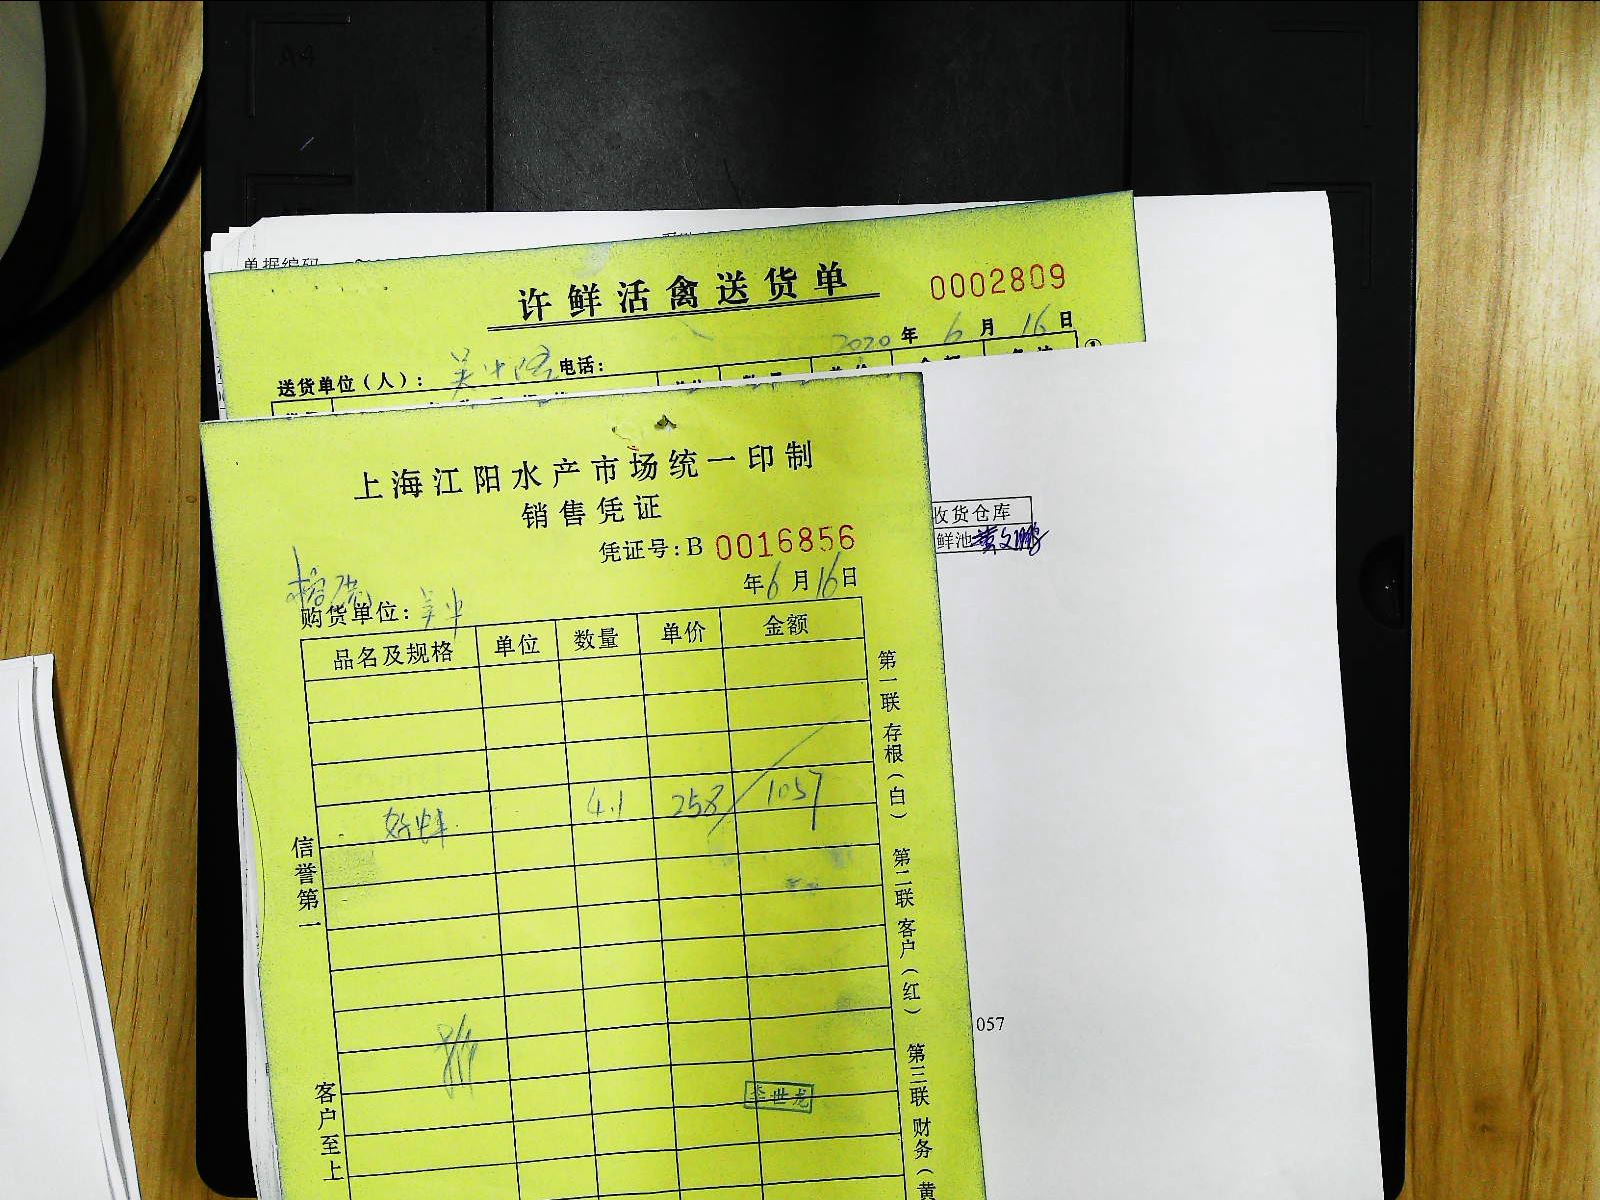 单据编码
许鲜活禽送货单
0002809
2020年6月16日
送货单位(人): 吴中路 电话:
上海江阳水产市场统一印制
销售凭证
凭证号: B 0016856
年6月16日
购货单位: 吴中
品名及规格 单位 数量 单价 金额
4.1 258 1057
信誉第一
客户至上
第一联 存根(白) 第二联 客户(红) 第三联 财务(黄
李世龙
收货仓库
鲜池
057